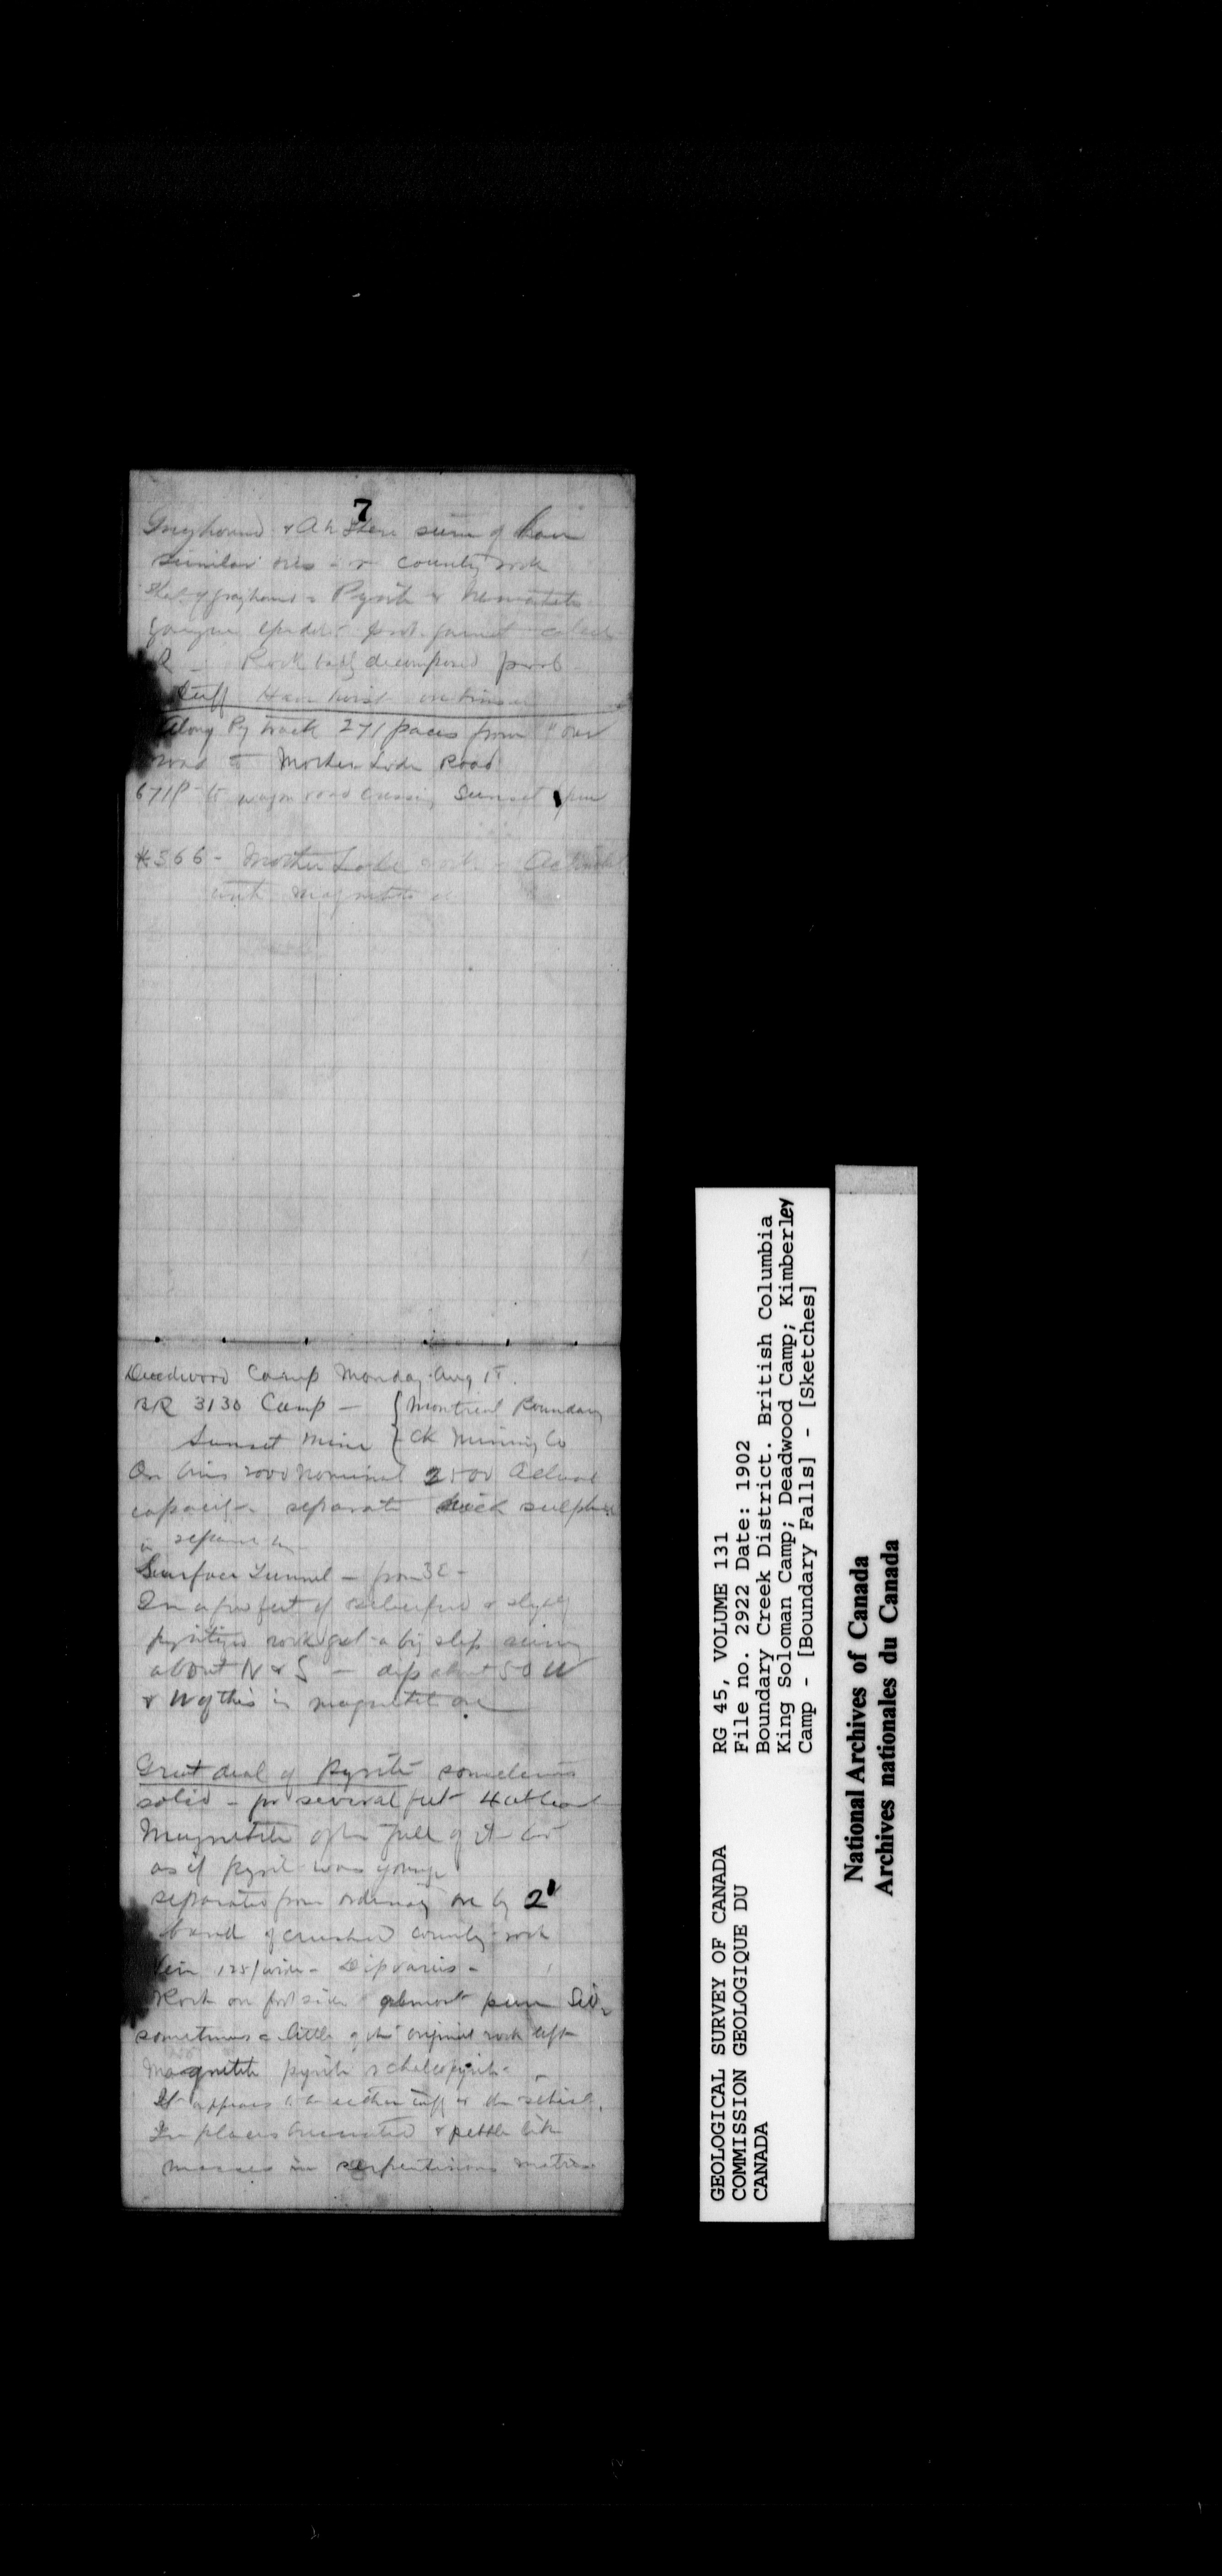 7
Greyhound & Ah There seem to have
similar ores - & country rock
That of Greyhound = Pyrite & hematite
gangue epidote garnet calcite
Rock badly decomposed prob
tuff Have hoist
Along Ry track 271 paces from "our
road to Mother Lode Road
671 P to wagon road crossing Sunset spur
*366 - Mother Lode rock - Actinolite
with magnetite
Deadwood Camp Monday Aug 18.
BR 3130 Camp - { Montreal Boundary
Sunset Mine { Ck Mining Co
Ore bins 2000 nominal 2500 actual
capacity - separate sulphur
Surface Tunnel - from 3E -
In a few feet of & slightly
pyritized rock get a big slip seam
about N & S - dip about 50 W
& W of this is magnetite ore
Great deal of Pyrite sometimes
solid - for several feet 4 at least
Magnetite often full of it
as if pyrite was younger
separated from ordinary ore by 2'
band of crushed country rock
Vein 125' wide - Dip varies -
Rock on foot side almost pure
sometimes a little of the original rock left
Magnetite pyrite & chalcopyrite -
It appears to be either tuff or the schist.
In places brecciated & pebble like
masses in serpentinous matrix
RG 45, VOLUME 131
File no. 2922 Date: 1902
Boundary Creek District. British Columbia
King Soloman Camp; Deadwood Camp; Kimberley
Camp - [Boundary Falls] - [Sketches]
GEOLOGICAL SURVEY OF CANADA
COMMISSION GEOLOGIQUE DU
CANADA
National Archives of Canada
Archives nationales du Canada